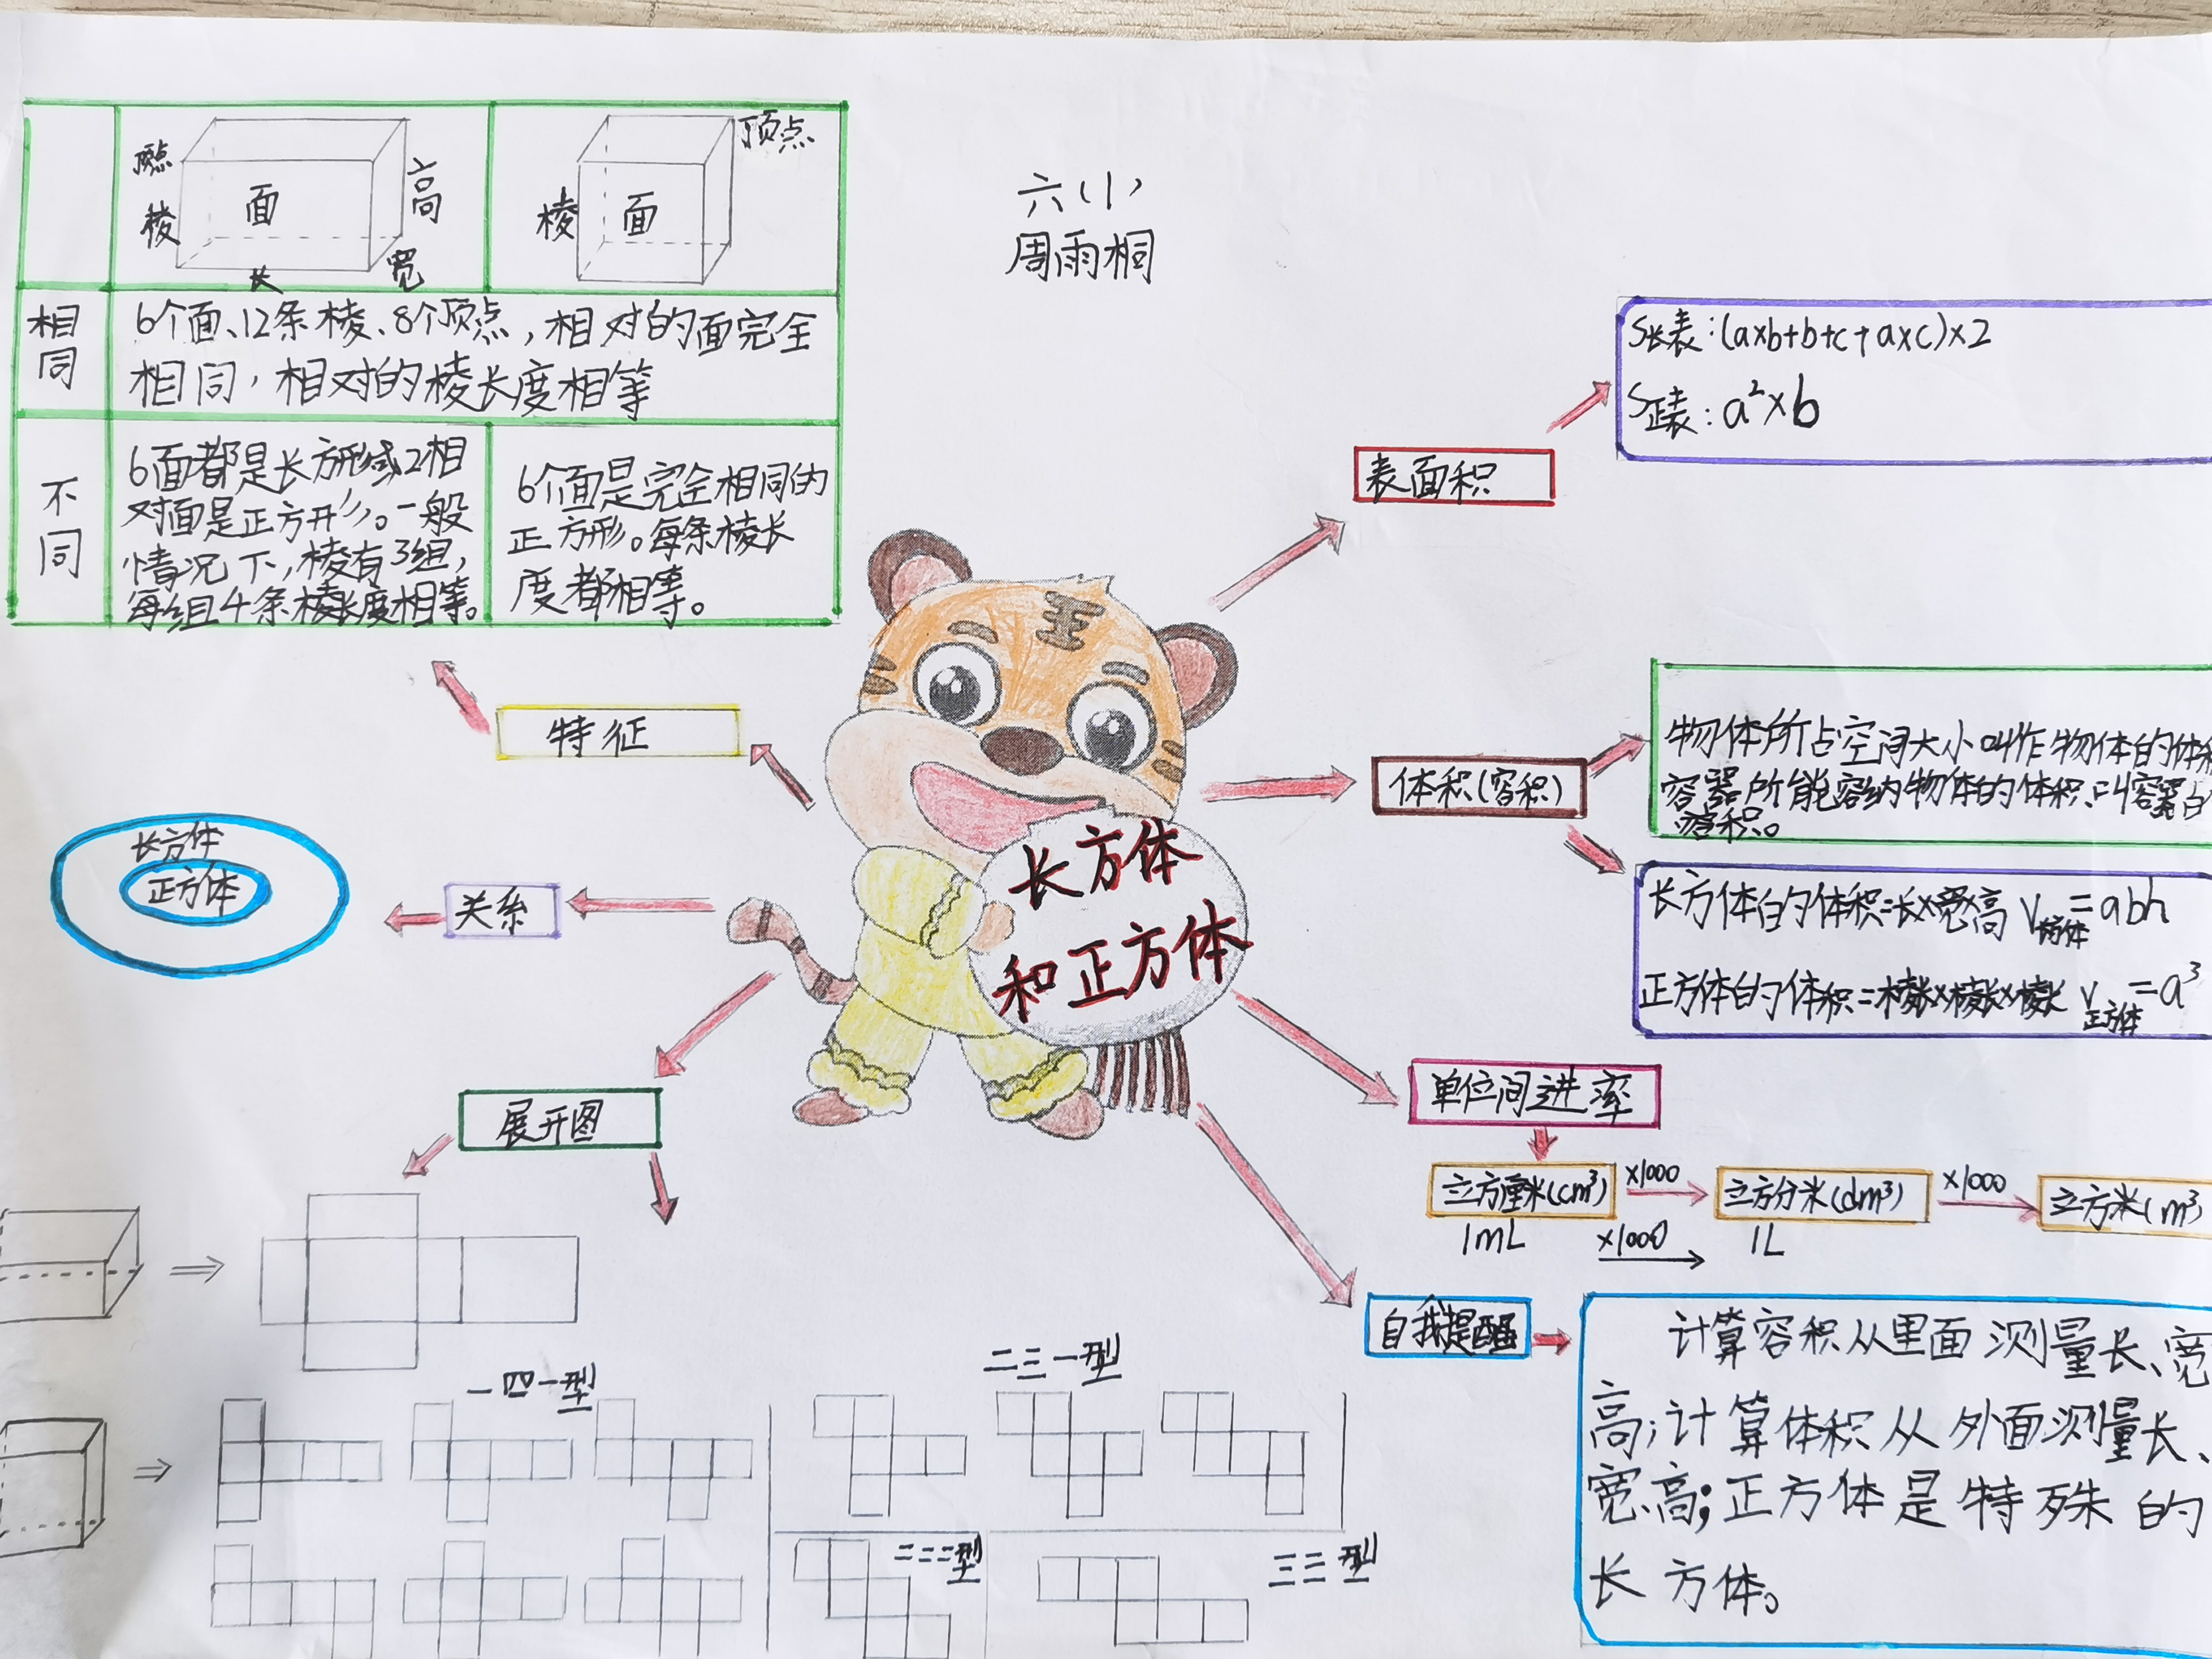 六(1)
周雨桐
顶点
棱
面
高
长
宽
顶点
棱
面
相同
6个面、12条棱、8个顶点,相对的面完全
相同,相对的棱长度相等
不同
6面都是长方形或2相
对面是正方形。一般
情况下,棱有3组,
每组4条棱长度相等。
6个面是完全相同的
正方形。每条棱长
度都相等。
特征
长方体
正方体
关系
展开图
一四一型
二三一型
二二二型
三三型
长方体
和正方体
表面积
S长表:(a×b+b+c+a×c)×2
S正表:a²×b
体积(容积)
物体所占空间大小叫作物体的体积
容器所能容纳物体的体积叫容器的
容积。
长方体的体积=长×宽×高 V长方体=abh
正方体的体积=棱长×棱长×棱长 V正方体=a³
单位间进率
立方厘米(cm³) ×1000 立方分米(dm³) ×1000 立方米(m³)
1mL ×1000 1L
自我提醒
计算容积从里面测量长、宽
高;计算体积从外面测量长、
宽、高;正方体是特殊的
长方体。